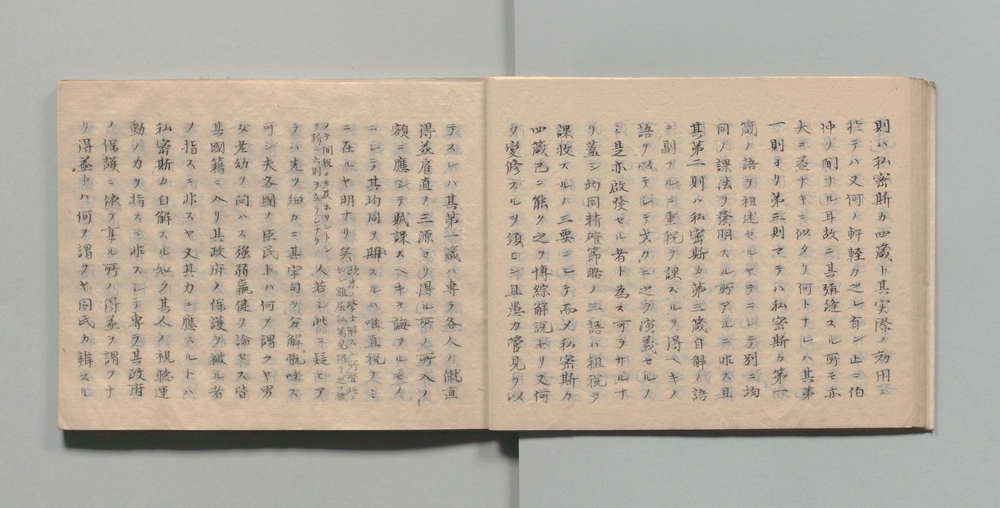 則ハ私密斯カ四箴ト其実際ノ効用ニ
於テハ又何ノ軒輊カ之レ有ン止ニ伯
仲ノ間ナル耳故ニ其弥逢スル所モ亦
大ニ益ナキニ似タリ何トナレハ其第
一則ヨリ第三則マテハ私密斯カ第一
箴ノ語ヲ祖述セルヤニシテ別ニ均
同ノ課法ヲ発明スル所アルニ非ス且
其第二則ハ私密斯カ第三箴自解ノ語
ニ副フルニ重税ヲ課スルヲ得ヘキノ
語ヲ以テシテ少クニ之ヲ演義セルノ
ミ是亦啟発セル者ト為ス可ラサルナ
リ蓋シ均同精確節略ノ三語ハ租税ヲ
課收スルノ三要ニシテ而メ私密斯カ
四箴已ニ能ク之ヲ博綜解説セリ又何
ソ変修スルヲ須ヒン且愚カ管見ヲ以
テスレハ其第一箴ハ専ラ各人カ僦直
得益雇直ノ三源ヨリ得ル所ノ所入ノ
額ニ應シテ賦課スヘキヲ誨フルモノ
ニシテ其均同ヲ期スルハ唯直税ノミ
ニ在ルヤ明ナリ矣
人若シ此ニ疑ヒア
ラハ先ツ細カニ其字句ヲ分解翫味ス
可シ夫各國ノ臣民トハ何ヲ謂フヤ男
女老幼ヲ問ハス強弱羸健ヲ論セス皆
其國籍ニ入リ其政府ノ保護ヲ被ル者
ヲ指スニ非スヤ又其力ニ應スルトハ
私密斯カ自解スル如ク其人ノ視聴運
動ノカヲ指スニ非スシテ専ラ其政府
ノ保護ニ依テ享ル所ノ得益ヲ謂フナ
リ得益トハ何ヲ謂フヤ同氏カ辨スル